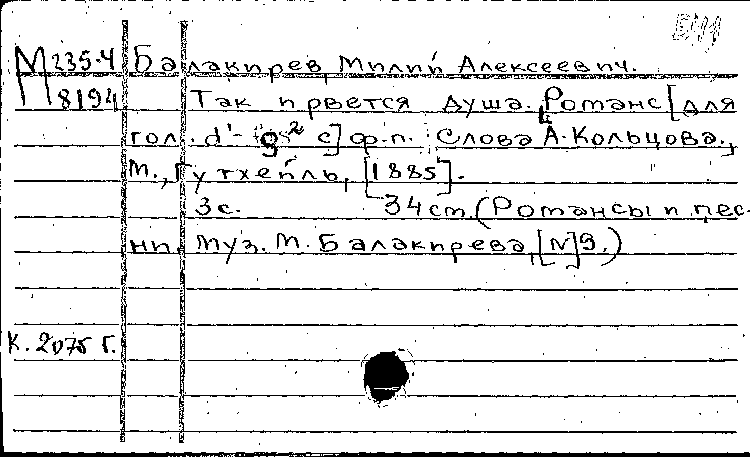 М 235.4 Балакирев, Милий Алексеевич.
М 8194 Так и рвется душа. Романс [для
гол. d¹- g² с] ф.п. Слова А. Кольцова.,
М., Гутхейль, [1885].
3с. 34 ст. (Романсы и пес
ни. муз. М. Балакирева, [N] 9.)
К. 2075 г.